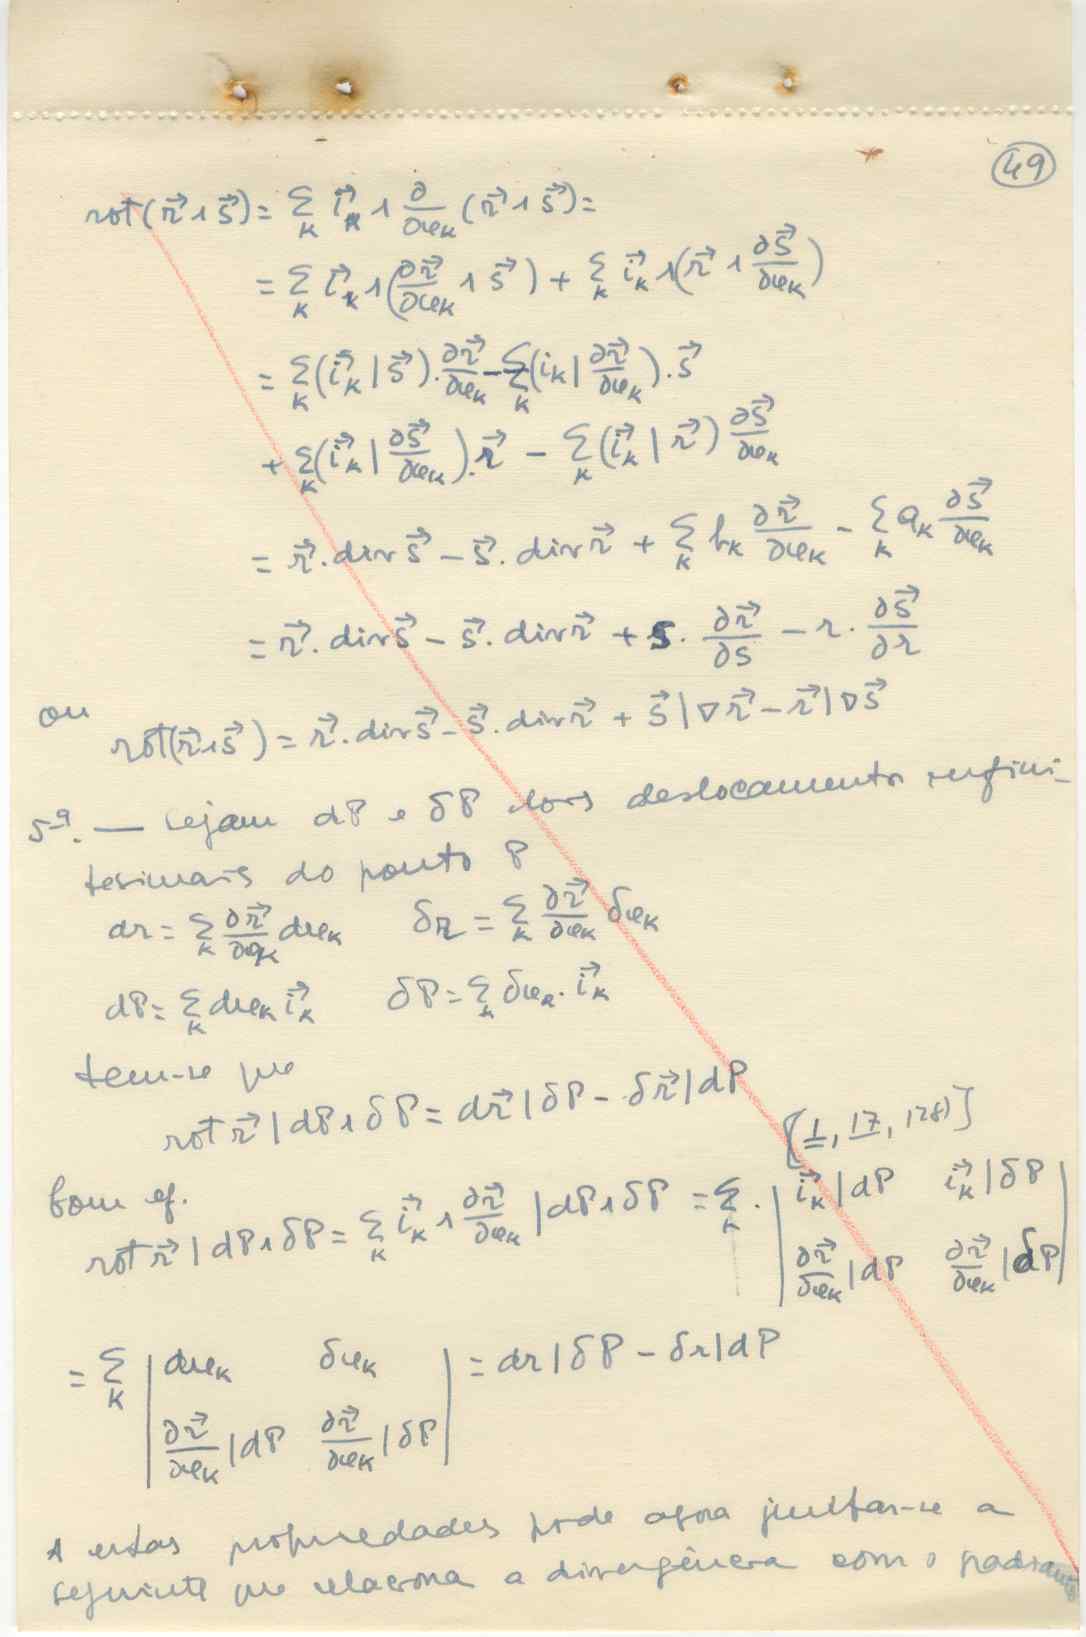 49
rot(r⃗∧s⃗) = Σ_k i⃗_k ∧ ∂/∂x_k (r⃗∧s⃗) =
= Σ_k i⃗_k ∧ (∂r⃗/∂x_k ∧ s⃗) + Σ_k i⃗_k ∧ (r⃗ ∧ ∂s⃗/∂x_k)
= Σ_k (i⃗_k | s⃗) . ∂r⃗/∂x_k − Σ_k (i_k | ∂r⃗/∂x_k) . s⃗
+ Σ_k (i⃗_k | ∂s⃗/∂x_k) . r⃗ − Σ_k (i⃗_k | r⃗) ∂s⃗/∂x_k
= r⃗ . div s⃗ − s⃗ . div r⃗ + Σ_k b_k ∂r⃗/∂x_k − Σ_k a_k ∂s⃗/∂x_k
= r⃗ . div s⃗ − s⃗ . div r⃗ + s . ∂r⃗/∂s − r . ∂s⃗/∂r
ou
rot(r⃗∧s⃗) = r⃗ . div s⃗ − s⃗ . div r⃗ + s⃗ | ∇r⃗ − r⃗ | ∇s⃗
5ª. — sejam dP e δP dois deslocamento infini-
tesimais do ponto P
dr = Σ_k ∂r⃗/∂x_k dx_k δr = Σ_k ∂r⃗/∂x_k δx_k
dP = Σ_k dx_k i⃗_k δP = Σ_k δx_k . i⃗_k
tem-se que
rot r⃗ | dP∧δP = dr⃗ | δP − δr⃗ | dP
[1, 17, 128)]
Com ef.
rot r⃗ | dP∧δP = Σ_k i⃗_k ∧ ∂r⃗/∂x_k | dP∧δP = Σ_k . | i⃗_k|dP i⃗_k|δP |
| ∂r⃗/∂x_k|dP ∂r⃗/∂x_k|δP |
= Σ_k | dx_k δx_k | = dr | δP − δr | dP
| ∂r⃗/∂x_k|dP ∂r⃗/∂x_k|δP |
A estas propriedades pode agora juntar-se a
seguinte que relaciona a divergência com o gradiante